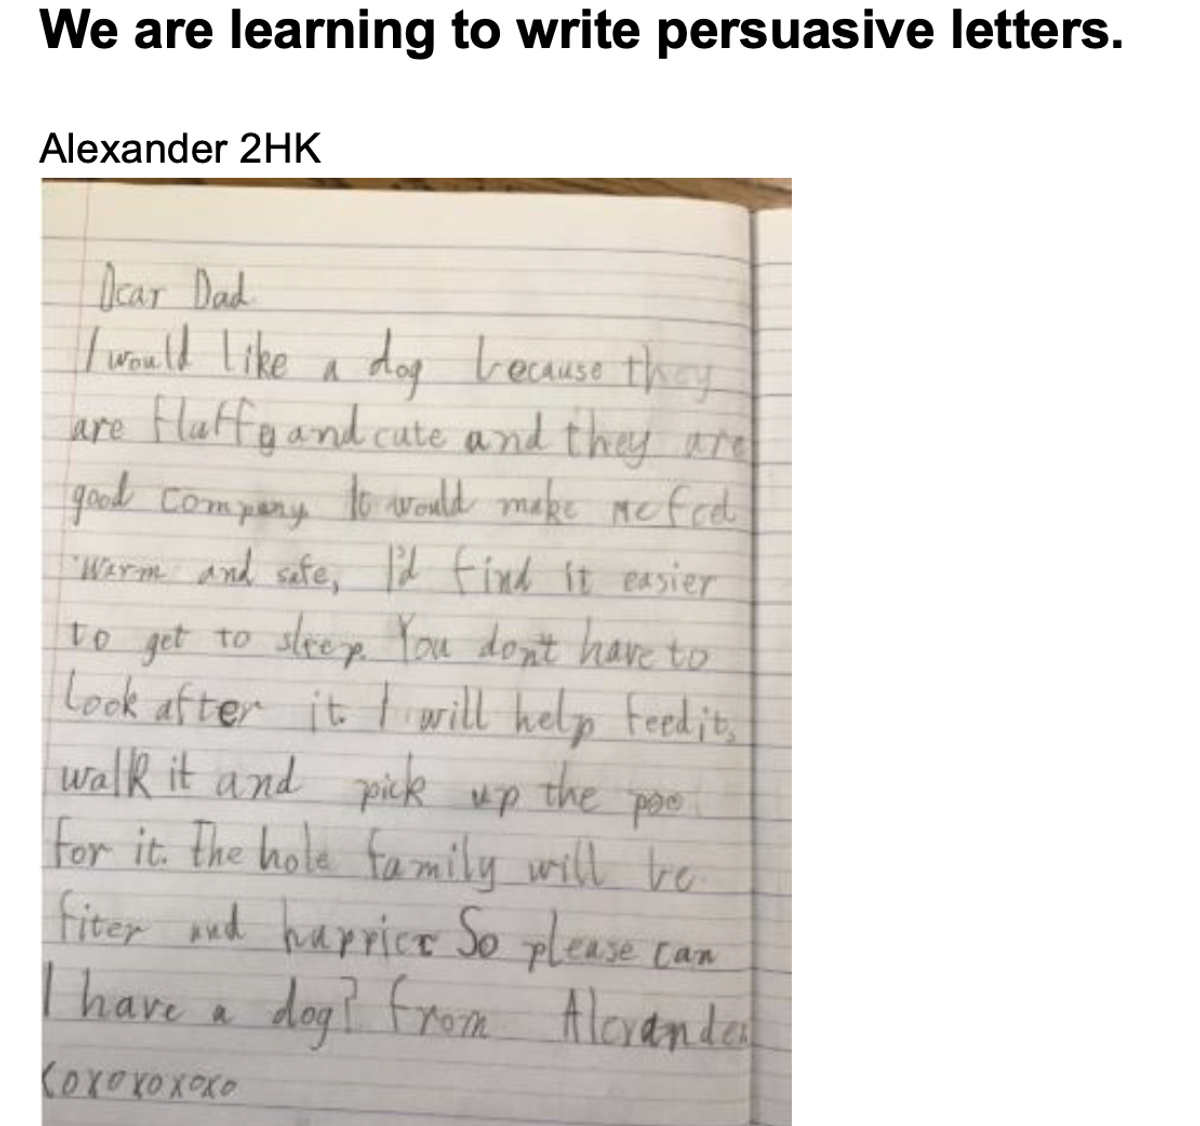 We are learning to write persuasive letters.
Alexander 2HK
Dear Dad
I would like a dog because they
are fluffy and cute and they are
good company It would make me feel
warm and safe, I'd find it easier
to get to sleep. You don't have to
look after it. I will help feed it,
walk it and pick up the poo
for it. The hole family will be
fiter and happier So please can
I have a dog? from Alexander
xoxoxoxoxo